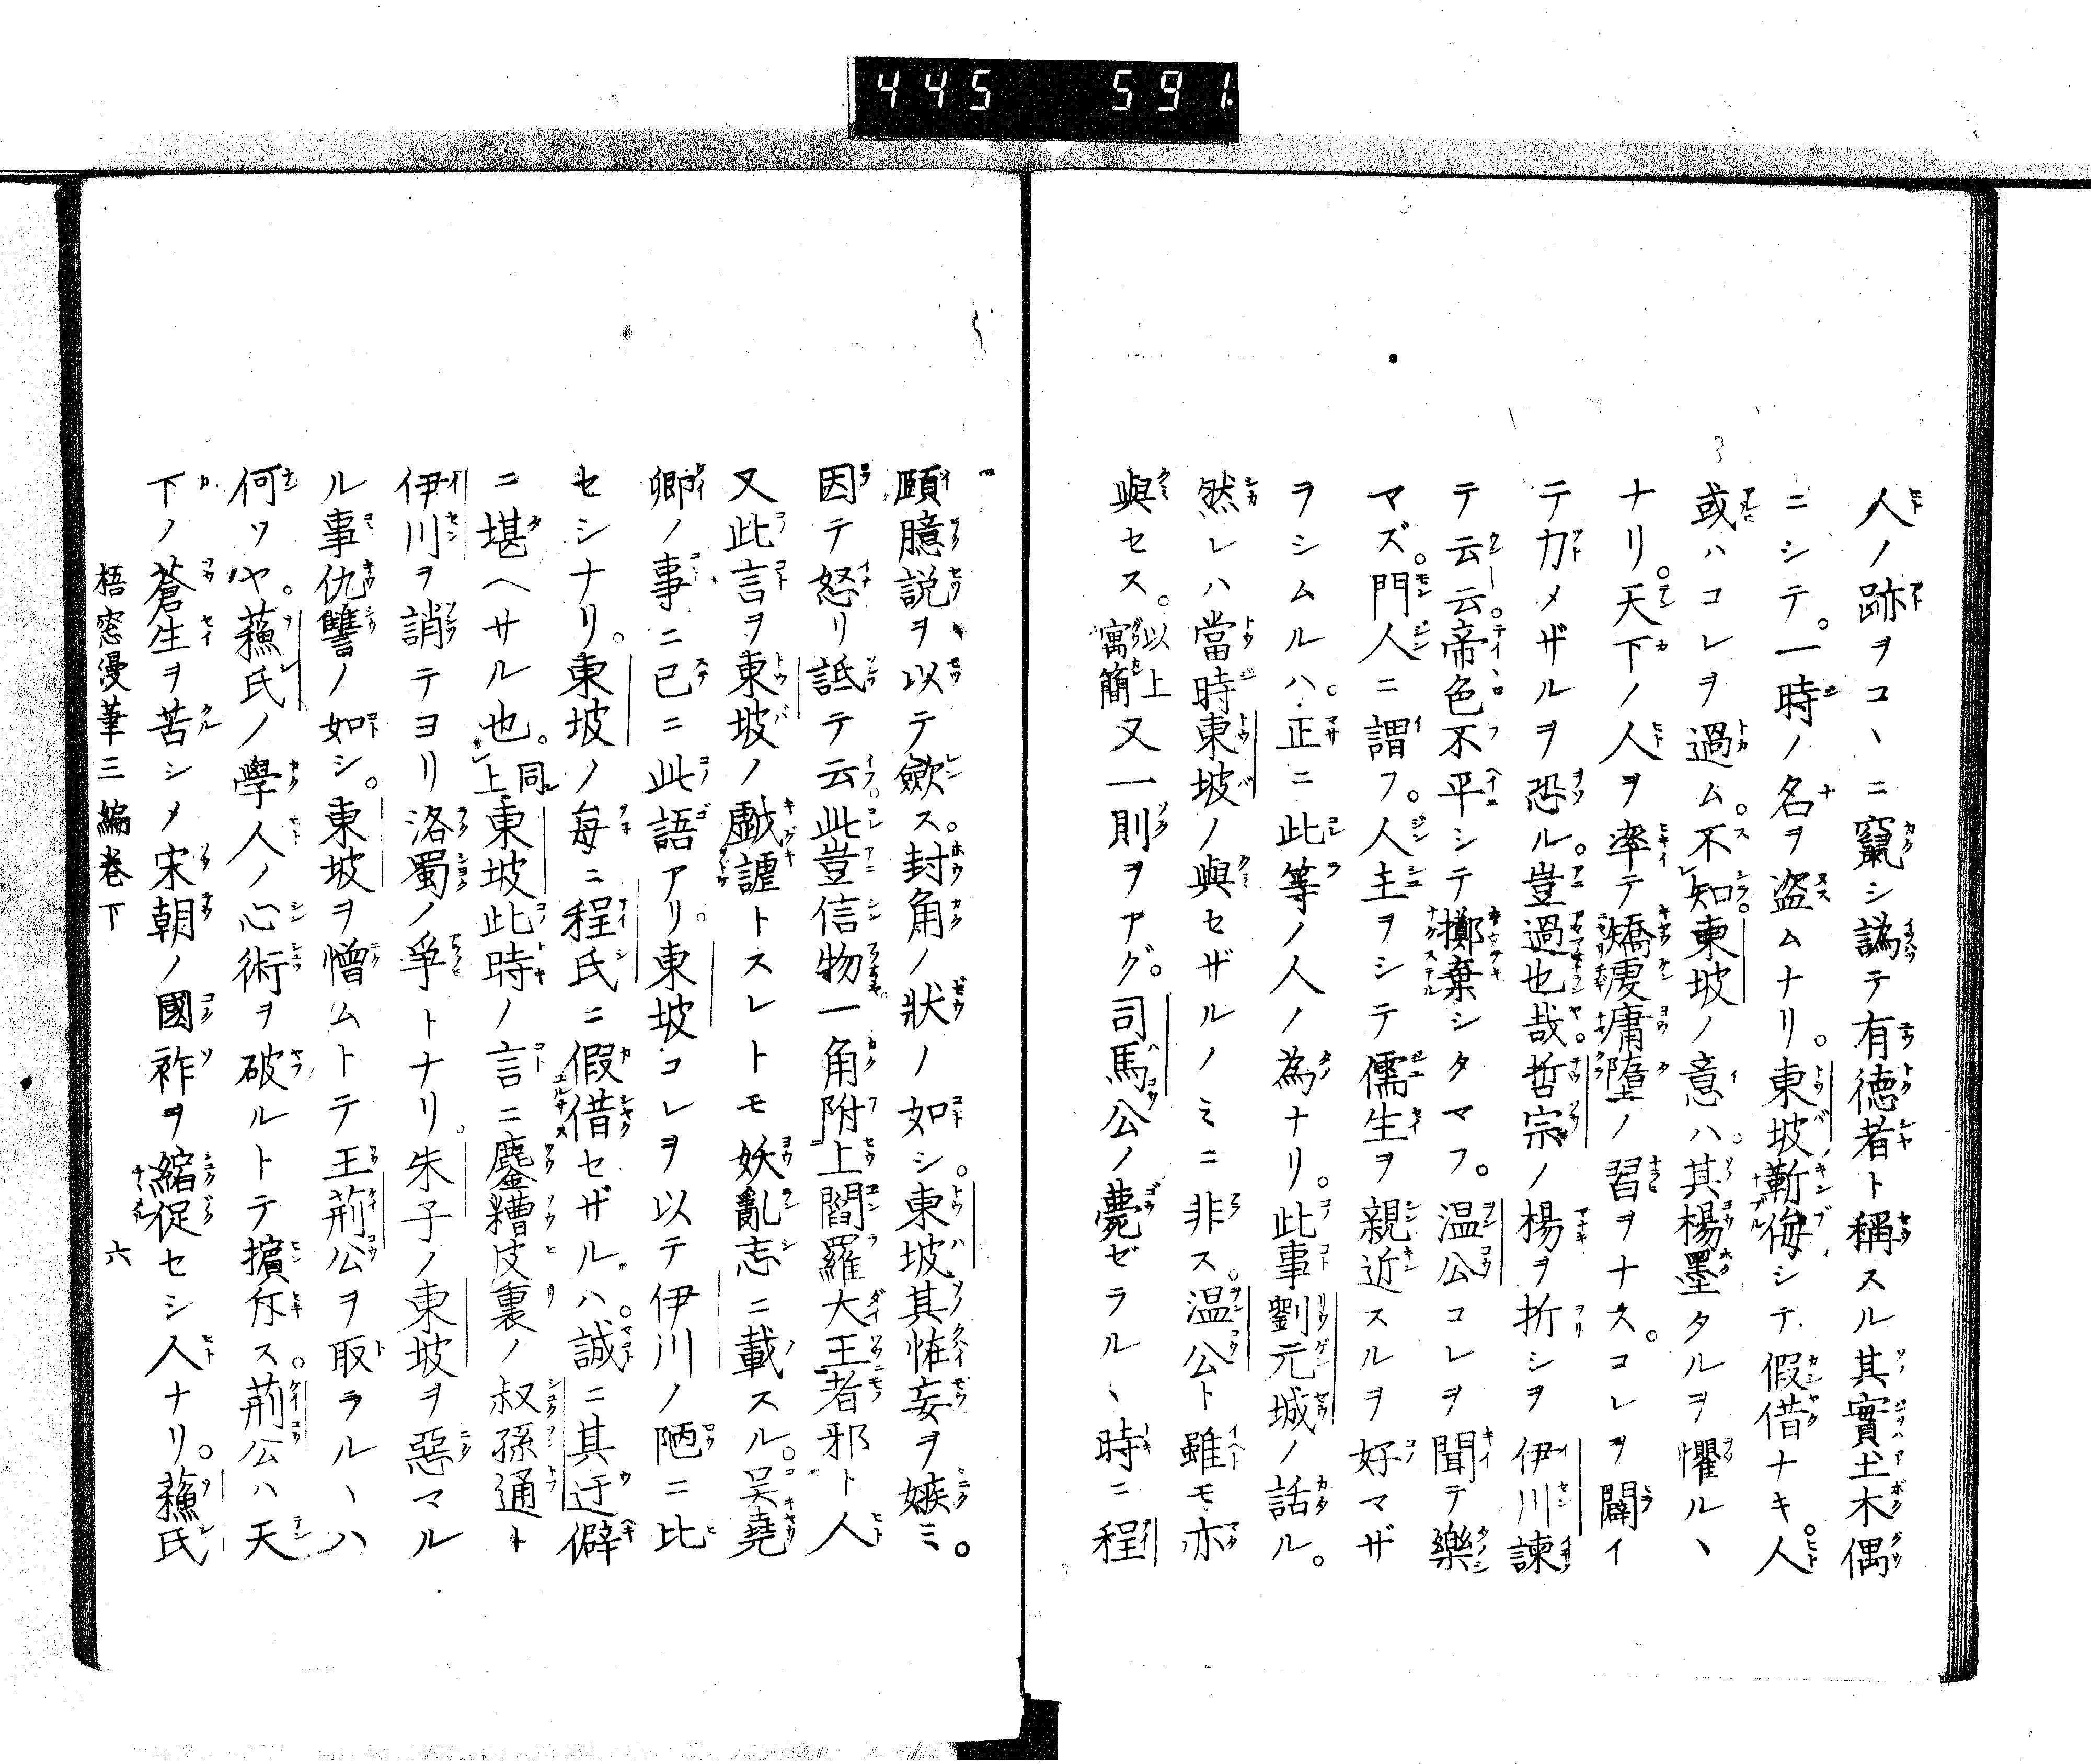 445 591.
人ノ跡ヲコヽニ竄シ譌テ有徳者ト稱スル其實土木偶
ニシテ。一時ノ名ヲ盗ムナリ。東坡靳侮シテ假借ナキ人。
或ハコレヲ過ム。不知東坡ノ意ハ。其楊墨タルヲ懼ルヽ
ナリ。天下ノ人ヲ率テ矯虔庸墮ノ習ヲナス。コレヲ闢イ
テ力メザルヲ恐ル。豈過也哉。哲宗ノ楊ヲ折シヲ伊川諫
テ云云。帝色不平シテ擲棄シタマフ。温公コレヲ聞テ樂
マズ。門人ニ謂フ。人主ヲシテ儒生ヲ親近スルヲ好マザ
ヲシムルハ。正ニ此等ノ人ノ為ナリ。此事劉元城ノ話ル。
然レハ當時東坡ノ與セザルノミニ非ス。温公ト雖モ亦
與セス。以上寓簡又一則ヲアグ。司馬公ノ薨ゼラルヽ時ニ程
頤臆説ヲ以テ歛ス。封角ノ狀ノ如シ。東坡其恠妄ヲ嫉ミ。
因テ怒リ詆テ云。此豈信物一角附上閻羅大王者邪ト人
又此言ヲ東坡ノ戯謔トスレトモ妖亂志ニ載スル。吴堯
卿ノ事ニ已ニ此語アリ。東坡コレヲ以テ伊川ノ陋ニ比
セシナリ。東坡ノ毎ニ程氏ニ假借セザルハ。誠ニ其迂僻
ニ堪ヘサル也。同上東坡此時ノ言ニ鏖糟皮裏ノ叔孫通ト
伊川ヲ誚テヨリ洛蜀ノ爭トナリ。朱子ノ東坡ヲ惡マル
ル事仇讐ノ如シ。東坡ヲ憎ムトテ王荊公ヲ取ラルヽハ
何ソヤ。蘓氏ノ學人ノ心術ヲ破ルトテ擯斥ス。荊公ハ天
下ノ蒼生ヲ苦シメ宋朝ノ國祚ヲ縮促セシ人ナリ。蘓氏
梧窓漫筆三編巻下 六